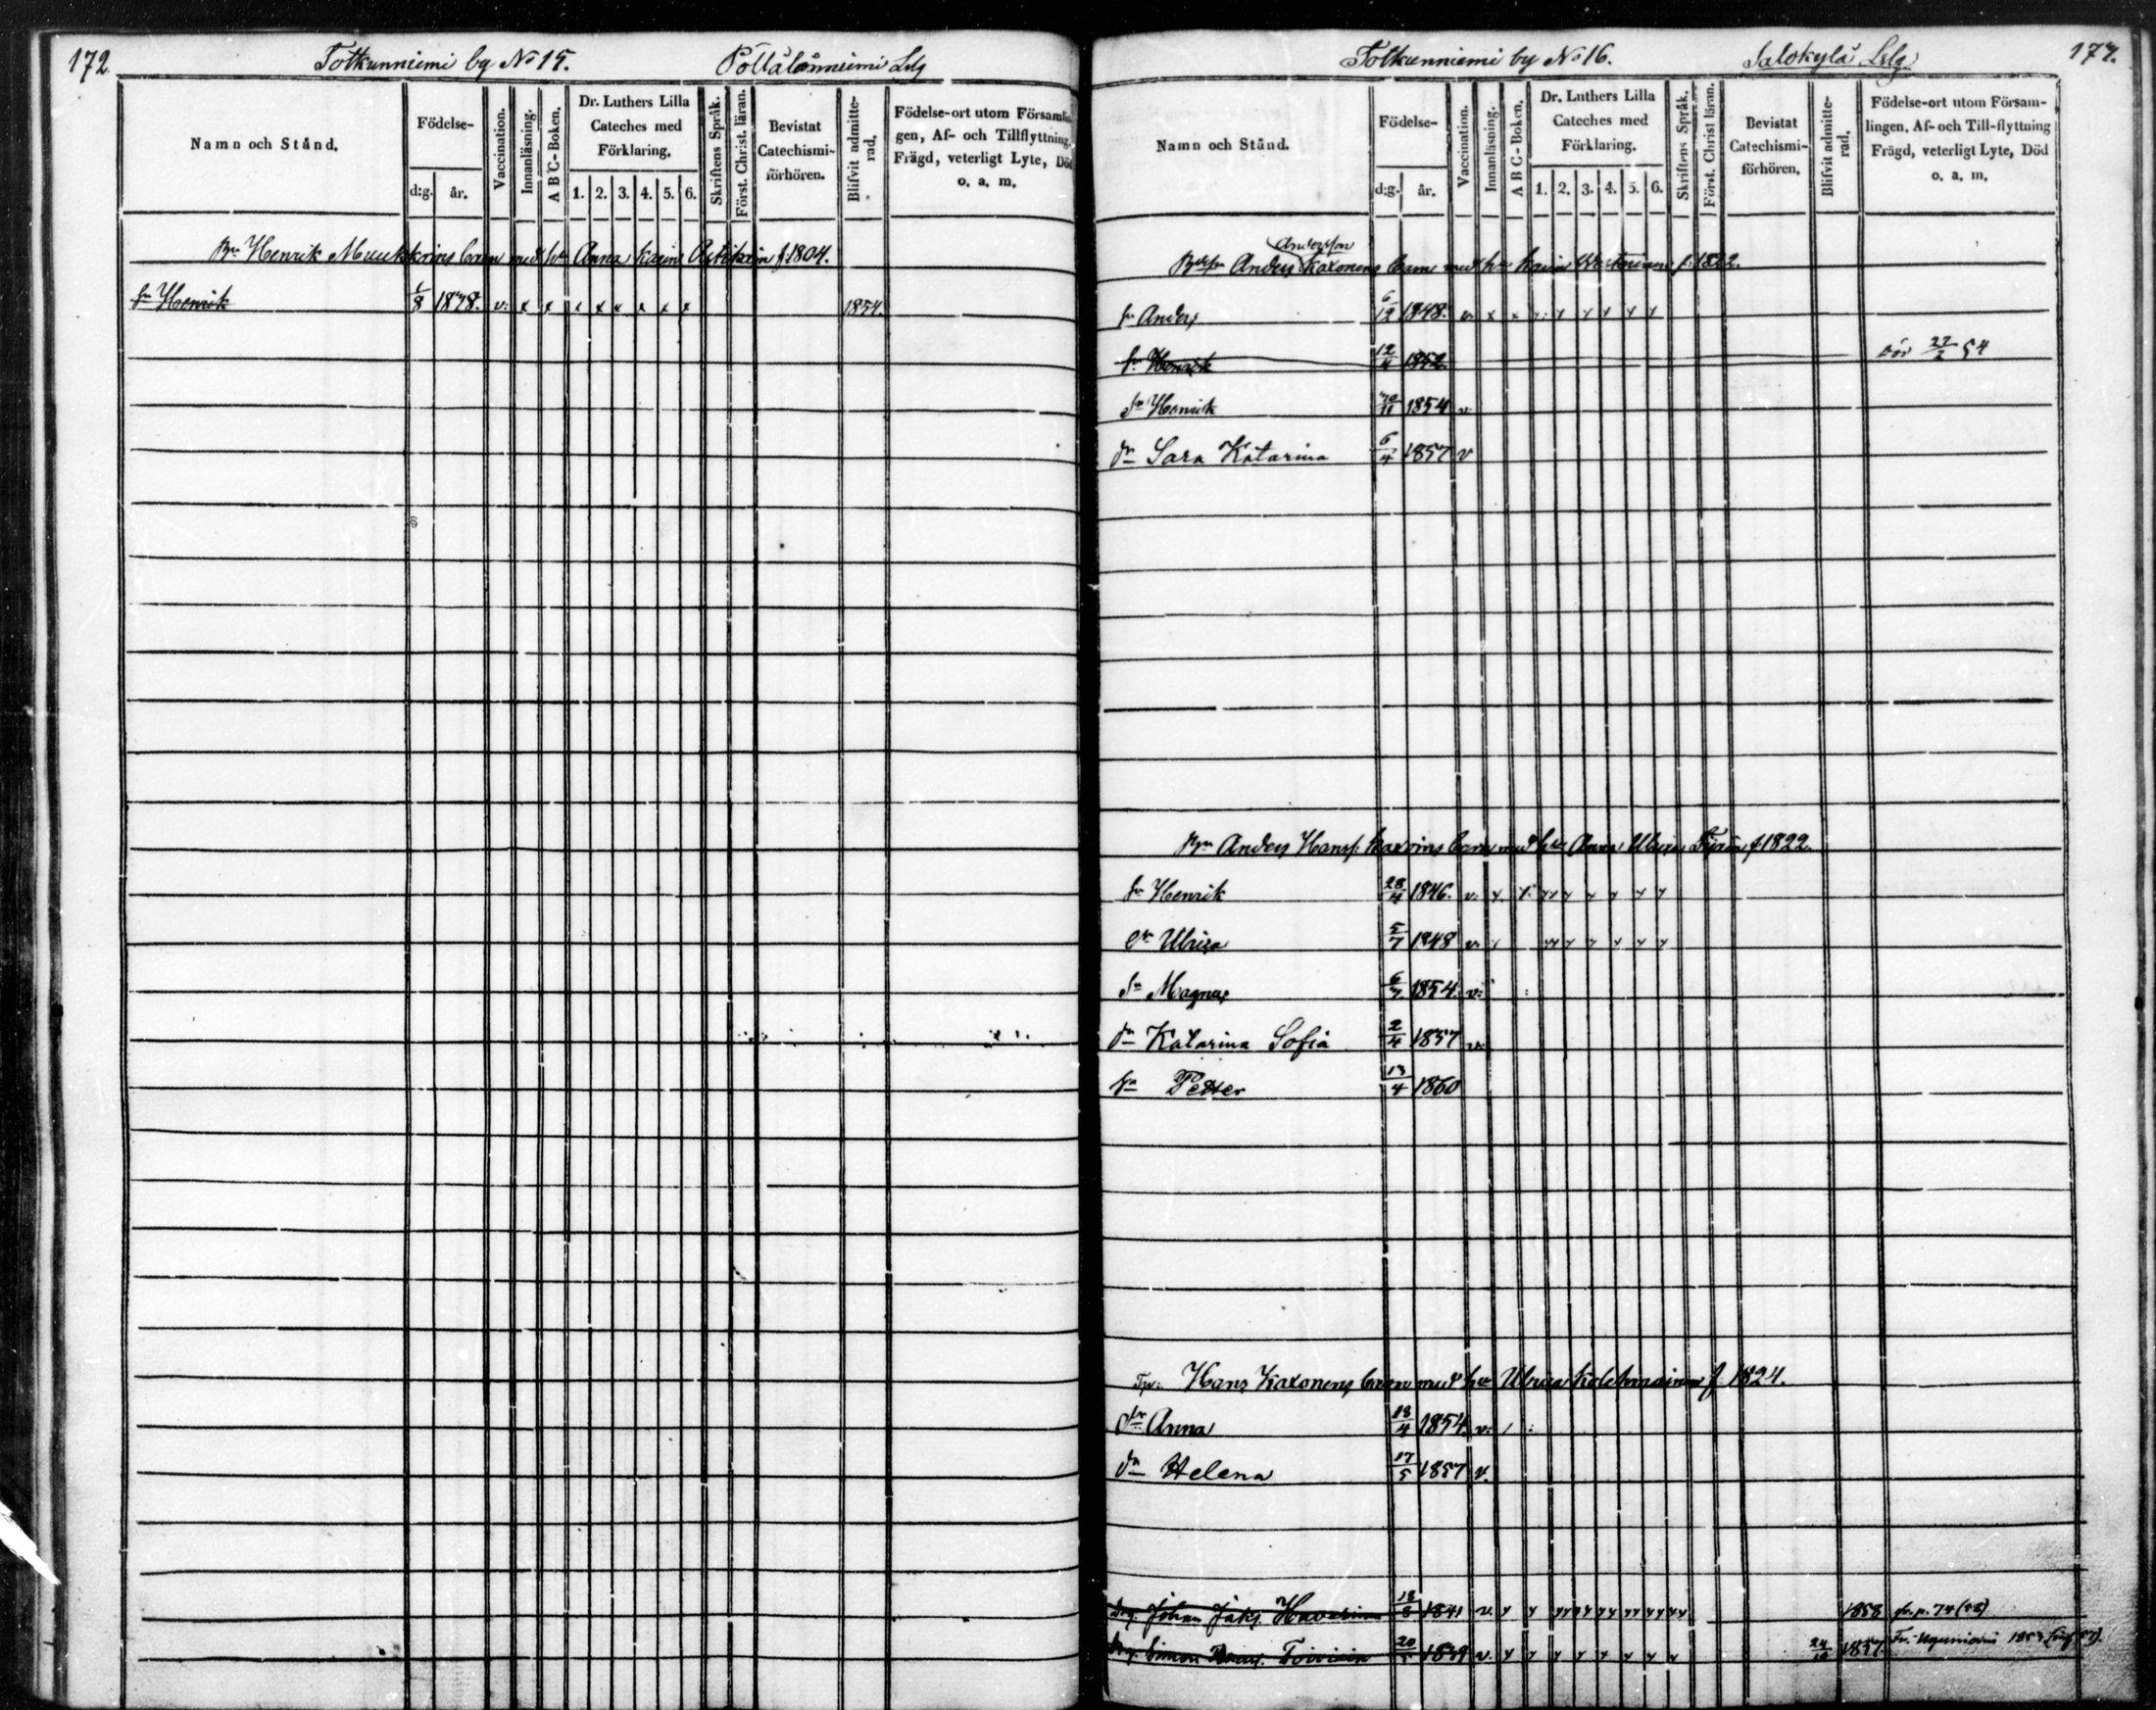 172. Totkunniemi by No 15. Pöllälänniemi Lslg
Namn och Stånd.
Födelse-
d:g. år.
Vaccination.
Innanläsning.
A B C-Boken.
Dr. Luthers Lilla
Cateches med
Förklaring.
1. 2. 3. 4. 5. 6.
Skriftens Språk.
Först. Christ. läran.
Bevistat
Catechismi-
förhören.
Blifvit admitte-
rad.
Födelse-ort utom Församlin-
gen, Af- och Tillflyttning,
Frägd, veterligt Lyte, Död
o. a. m.
Bn Henrik Muukkoins barn med hu Anna Karin f. 1804.
sn Henrik 1/8 1838. v: x x x x x x x x 1854.
Totkunniemi by No 16. Salokylä Lslg 173.
Namn och Stånd.
Födelse-
d:g. år.
Vaccination.
Innanläsning.
A B C-Boken.
Dr. Luthers Lilla
Cateches med
Förklaring.
1. 2. 3. 4. 5. 6.
Skriftens Språk.
Först. Christ läran.
Bevistat
Catechismi-
förhören.
Blifvit admitte-
rad.
Födelse-ort utom Försam-
lingen, Af- och Till-flyttning
Frägd, veterligt Lyte, Död
o. a. m.
Andersson
Anders Kaxonens barn med hu Karin f. 1822.
sn Anders 6/12 1848. v.
sn Henrik 12/4 1852. död 27/2 54
Sn Henrik 1854 v.
dr Sara Katarina 6/4 1857 v
Bn Anders Hanss. Kaxoins barn med hu Anna Ulrica f. 1822.
sn Henrik 28/4 1846. v.
dr Ulrica 5/7 1848 v.
Sn Magnus 6/7 1854. v:
dr Katarina Sofia 2/4 1857 v.
sn Petter 13/4 1860
Hans Kaxonens barn med hu Ulrica Kolehmainen f. 1824.
dr Anna 18/4 1854. v:
dr Helena 17/5 1857 v.
Drg. Johan Jaks. 18/8 1841 v. 1858 fr. p. 74 (58)
Drg. Simon Toivinen 20/5 1839 v. 24/10 1857.